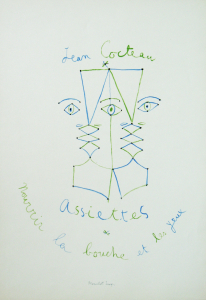 Jean Cocteau
Assiettes
Nourrir la bouche et les yeux